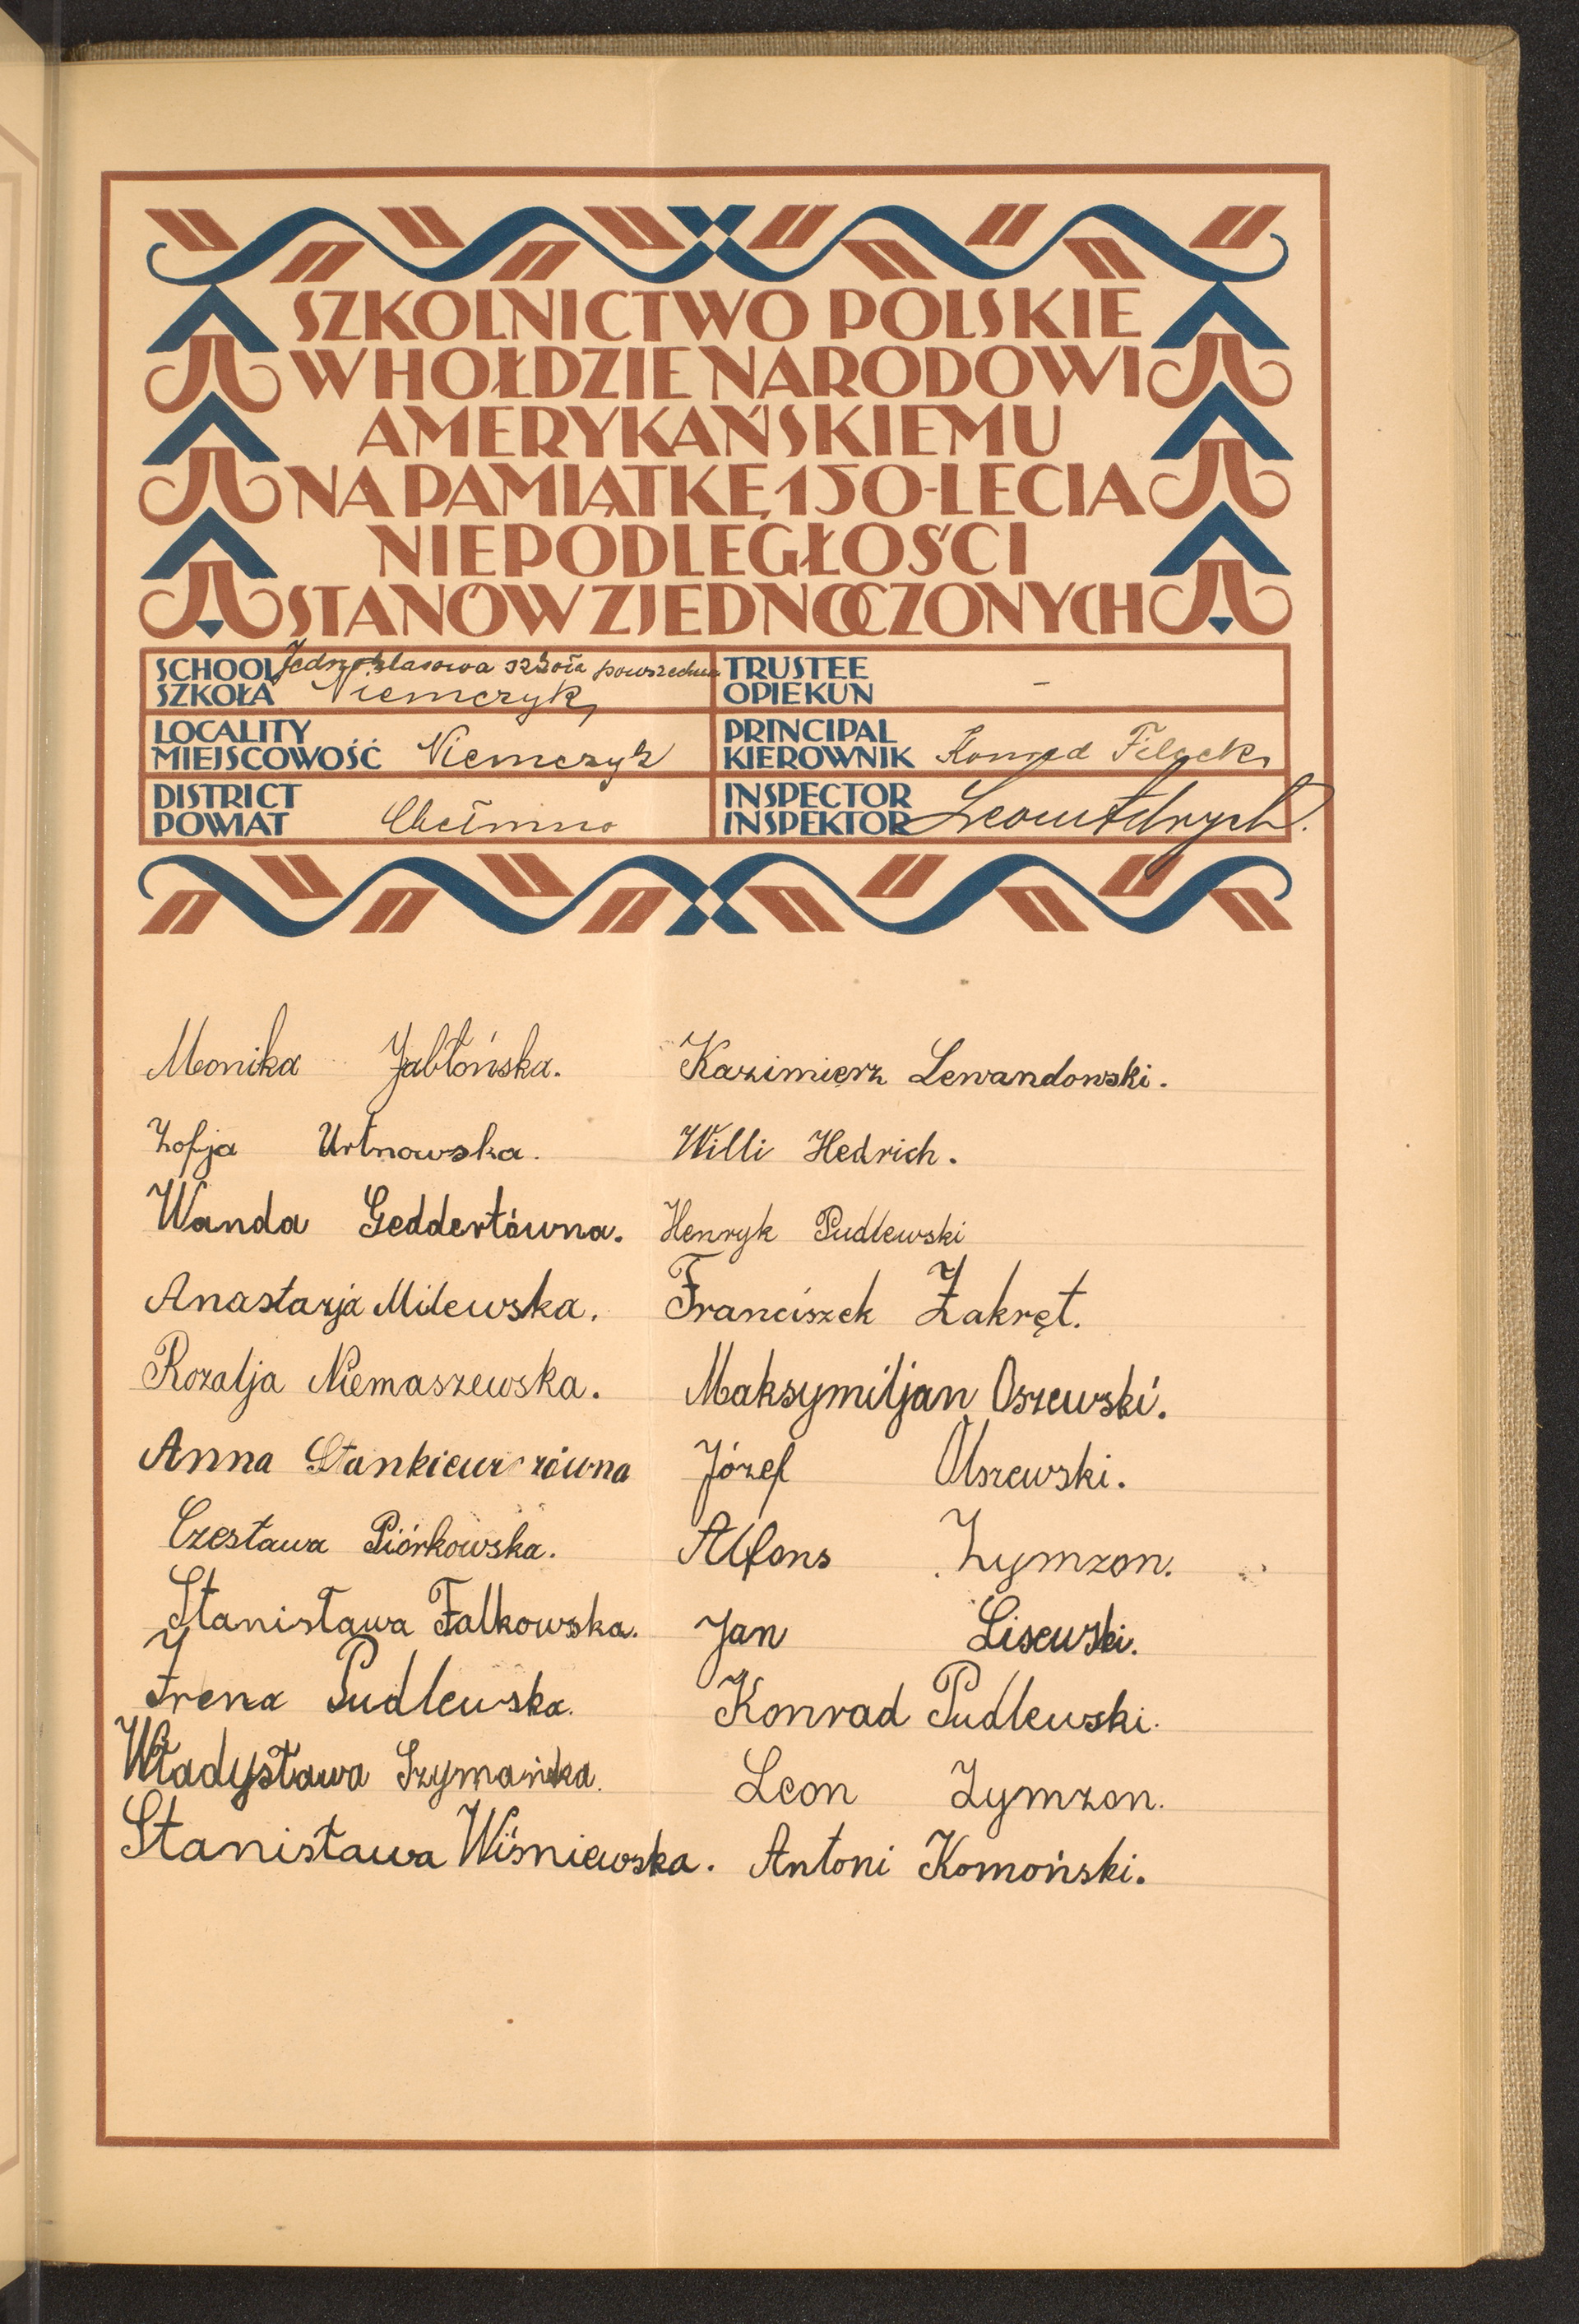 SZKOLNICTWO POLSKIE
W HOŁDZIE NARODOWI
AMERYKAŃSKIEMU
NA PAMIĄTKĘ 150-LECIA
NIEPODLEGŁOŚCI
STANÓW ZJEDNOCZONYCH
SCHOOL Jednoklasowa szkoła powszechna
SZKOŁA Niemczyk
TRUSTEE
OPIEKUN -
LOCALITY
MIEJSCOWOŚĆ Niemczyk
PRINCIPAL
KIEROWNIK Konrad
DISTRICT
POWIAT Chełmno
INSPECTOR
INSPEKTOR
Monika Jabłońska.
Zofja Urtnowska.
Wanda Geddertówna.
Anastazja Milewska.
Rozalja Niemaszewska.
Anna Stankiewiczówna
Czesława Piórkowska.
Stanisława Falkowska.
Irena Pudlewska.
Władysława Szymańska.
Stanisława Wiśniewska.
Kazimierz Lewandowski.
Willi Hedrich.
Henryk Pudlewski
Franciszek Zakręt.
Maksymiljan Oszewski.
Józef Olszewski.
Alfons Zymzon.
Jan Lisewski.
Konrad Pudlewski.
Leon Zymzon.
Antoni Komoński.